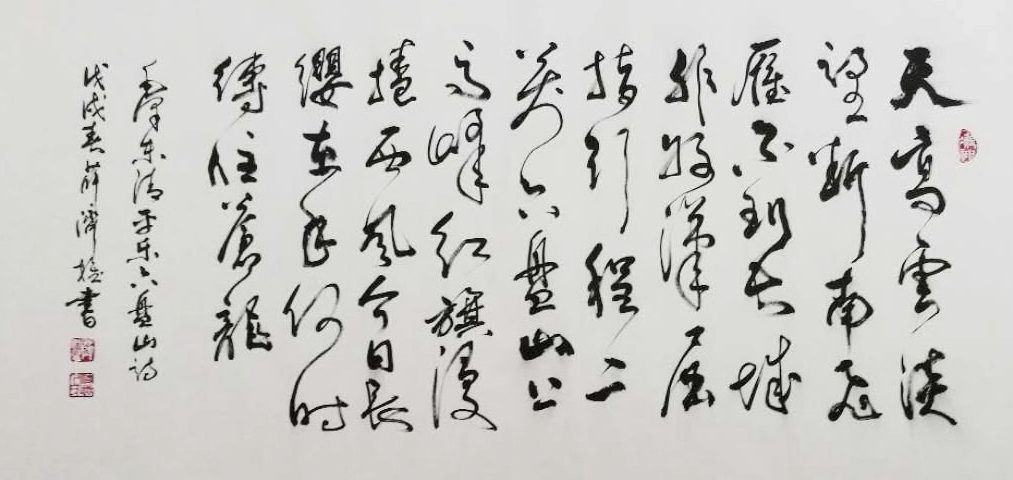 天高雲淡
望斷南飛
雁不到長城
非好漢屈
指行程二
萬六盤山上
高峰紅旗漫
捲西風今日長
纓在手何時
縛住蒼龍
毛澤东清平乐六盤山詩
戊戌春薛濟書